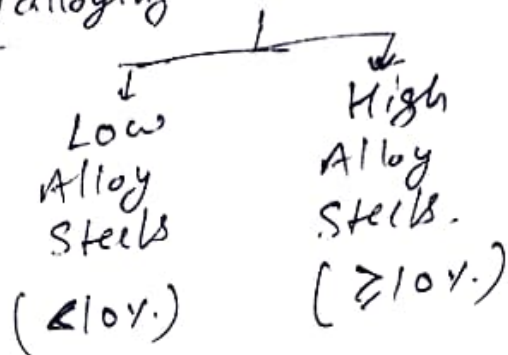 alloying
Low
Alloy
Steels
(<10%)
High
Alloy
Steels.
(≥10%)